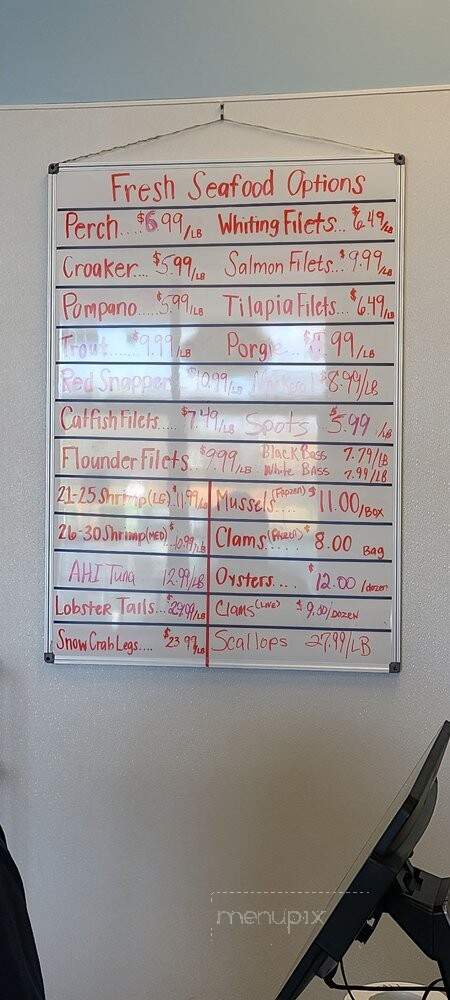 Fresh Seafood Options
Perch... $6.99/LB Whiting Filets... $6.49/LB
Croaker... $5.99/LB Salmon Filets... $9.99/LB
Pompano..... $5.99/LB Tilapia Filets... $6.49/LB
Trout..... $9.99/LB Porgie... 99/LB
Red Snapper $10.99/LB $8.99/LB
Catfish Filets.... $7.49/LB Spots $5.99 /LB
Flounder Filets.. $9.99/LB Black Bass 7.79/LB
White BASS 7.99/LB
21-25 Shrimp (LG) $11.99/LB Mussels (Frozen) $11.00/Box
26-30 Shrimp (MED) $10.99/LB Clams (Frozen) $8.00 Bag
AHI Tuna 12.99/LB Oysters.... $12.00 /dozen
Lobster Tails... $29.99/LB Clams (LIVE) $9.50/DOZEN
Snow Crab Legs.... $23.99/LB Scallops 27.99/LB
menupix